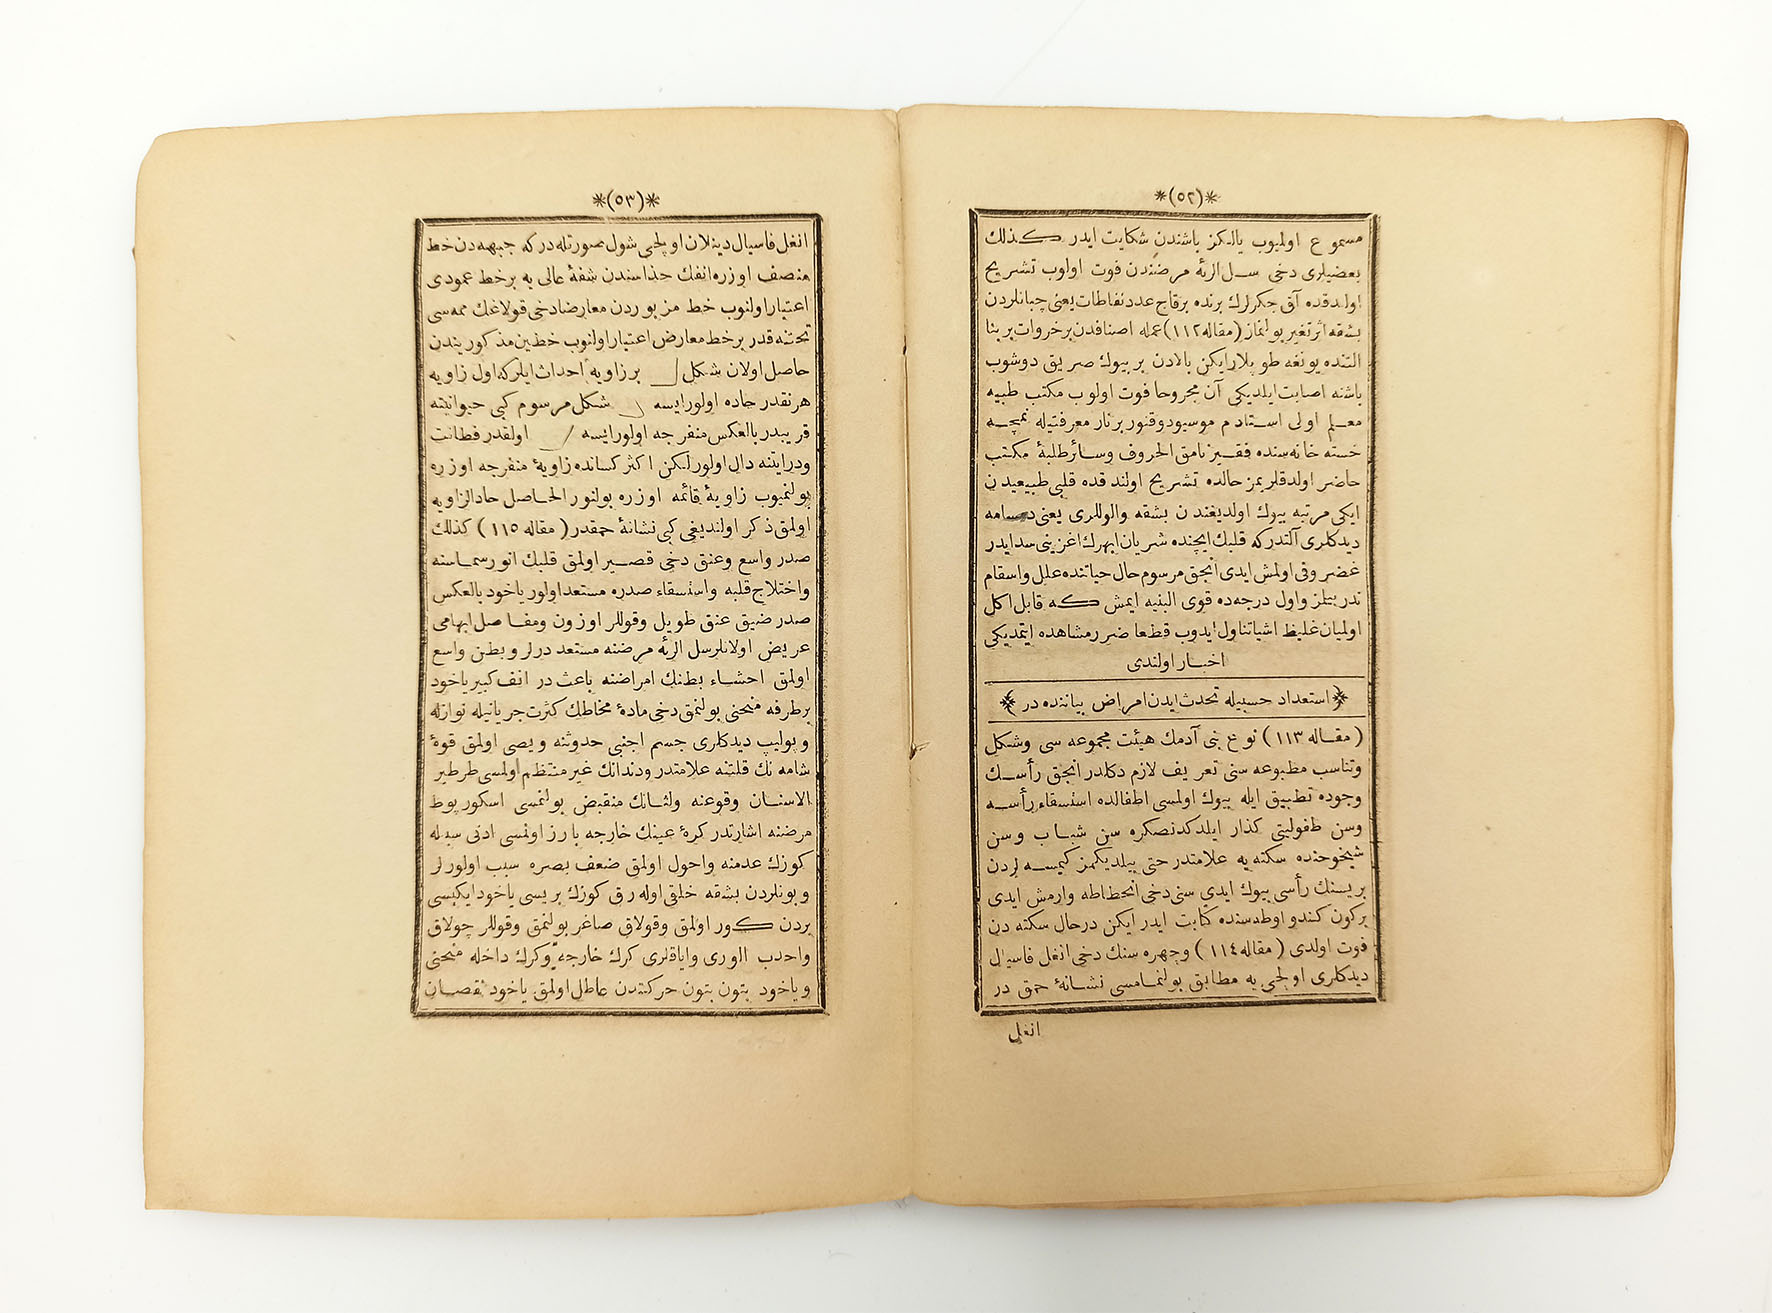 *(٥٢)*
مسموع اولمیوب یالکز باشندن شکایت ایدر کذلك
بعضیلری دخی سل الرئه مرضندن فوت اولوب تشریح
اولندقده آق جکرلرك برنده برقاج عدد نفاطات یعنی چبانلردن
بشقه اثر تغیر بولنماز (مقاله ١١٢) عمله اصنافدن برخروات بر بنا
التنده یونغه طوپلارایکن بالادن بر بیوك صریق دوشوب
باشنه اصابت ایلدیکی آن مجروحا فوت اولوب مکتب طبیه
معلم اولی استادم موسیو دوقتور برنار معرفتیله نمچه
خسته خانه سنده فقیر نامق الحروف وسائر طلبۀ مکتب
حاضر اولدقلریمز حالده تشریح اولندقده قلبی طبیعیدن
ایکی مرتبه بیوك اولدیغندن بشقه والوللری یعنی دسامه
دیدکلری آلتدرکه قلبك ایچنده شریان ابهرك اغزینی سد ایدر
غضروفی اولمش ایدی انجق مرسوم حال حیاتنده علل واسقام
ندر بتلز واول درجه ده قوی البنیه ایمش که قابل اکل
اولمیان غلیظ اشیاتناول ایدوب قطعا ضرر مشاهده ایتمدیکی
اخبار اولندی
استعداد حسبیله تحدث ایدن امراض بیاننده در
(مقاله ١١٣) نوع بنی آدمك هیئت مجموعه سی وشکل
وتناسب مطبوعه سنی تعریف لازم دکلدر انجق رأسك
وجوده تطبیق ایله بیوك اولمسی اطفالده استسقاء رأسه
وسن طفولیتی کذار ایلدکدنصکره سن شباب وسن
شیخوخنده سکته یه علامتدر حتی بیلدیکمز کیمسه لردن
بریسنك رأسی بیوك ایدی سنی دخی انحطاطه وارمش ایدی
برکون کندو اوطه سنده کتابت ایدر ایکن درحال سکته دن
فوت اولدی (مقاله ١١٤) وچهره سنك دخی انغل فاسیال
دیدکلری اولچی یه مطابق بولنمامسی نشانۀ حمق در
انغل
*(٥٣)*
انغل فاسیال دینلان اولچی شول صورتله درکه جبهه دن خط
منصف اوزره انفك حذاسندن شفۀ عالی یه برخط عمودی
اعتبار اولنوب خط مزبوردن معارضا دخی قولاغك ممه سی
تحتنه قدر برخط معارض اعتبار اولنوب خطین مذکوریندن
حاصل اولان شکل برزاویه احداث ایلرکه اول زاویه
هرنقدر جاده اولورایسه شکل مرسوم کبی حیوانیته
قریبدر بالعکس منفرجه اولورایسه اولقدر فطانت
ودرایتنه دال اولور لکن اکثر کسانده زاویۀ منفرجه اوزره
بولنمیوب زاویۀ قائمه اوزره بولنور الحاصل حادالزاویه
اولمق ذکر اولندیغی کبی نشانۀ حمقدر (مقاله ١١٥) کذلك
صدر واسع وعنق دخی قصیر اولمق قلبك انورسماسنه
واختلاج قلبه واستسقاء صدره مستعد اولور یاخود بالعکس
صدر ضیق عنق طویل وقوللر اوزون ومفاصل ابهامی
عریض اولانلر سل الرئه مرضنه مستعد درلر وبطن واسع
اولمق احشاء بطنك امراضنه باعث در انف کبیر یاخود
برطرفه منحنی بولنمق دخی مادۀ مخاطك کثرت جریانیله نوازله
وپولیپ دیدکلری جسم اجنبی حدوثنه ویصی اولمق قوۀ
شامه نك قلتنه علامتدر ودندانك غیر منتظم اولمسی طرطیر
الاسنان وقوعنه ولثانك منقبض بولنمسی اسکورپوط
مرضنه اشارتدر کرۀ عینك خارجه بارز اونمسی ادنی سببله
کوزك عدمنه واحول اولمق ضعف بصره سبب اولورلر
وبونلردن بشقه خلقی اوله رق کوزك بریسی یاخود ایکیسی
بردن کور اولمق وقولاق صاغر بولنمق وقوللر چولاق
واحدب الوری وایاقلری کرك خارجه وکرك داخله منحنی
ویاخود بتون بتون حرکتدن عاطل اولمق یاخود نقصان